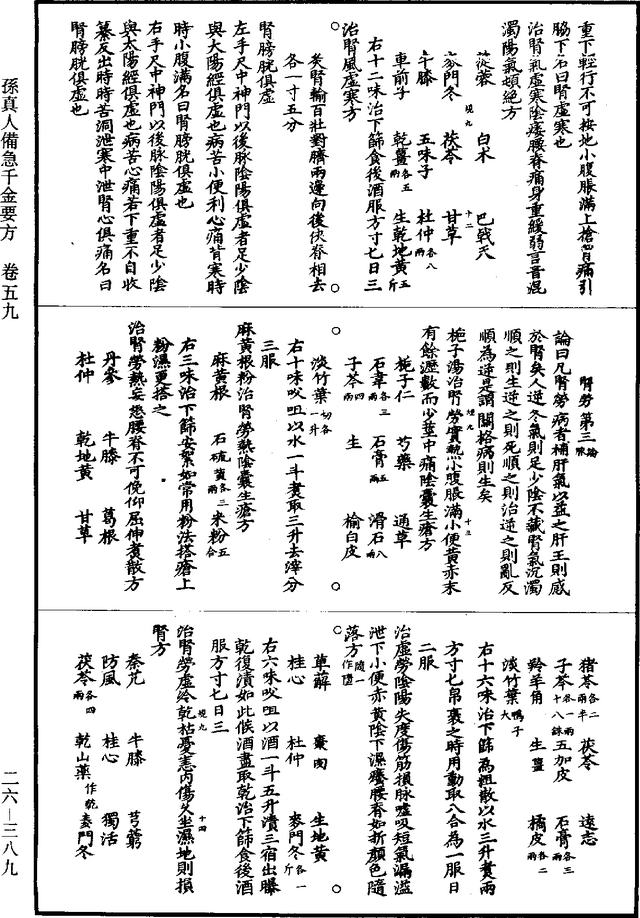 孫真人備急千金要方　卷五九
二六—三八九
重下輕行不可按地小腹脹滿上搶胷痛引
脇下名曰腎虛寒也
治腎氣虛寒陰痿腰脊痛身重緩弱言音混
濁陽氣頓絕方
蓯蓉　白朮　巴戟天
麥門冬　茯苓　甘草
牛膝　五味子　杜仲各八兩
車前子　乾薑各五兩　生乾地黃五斤
右十二味治下篩食後酒服方寸七日三
治腎風虛寒方
灸腎輸百壯對臍兩邊向後俠脊相去
各一寸五分
腎膀胱俱虛
左手尺中神門以後脉陰陽俱虛者足少陰
與太陽經俱虛也病苦小便利心痛背寒時
時小腹滿名曰腎膀胱俱虛也
右手尺中神門以後脉陰陽俱虛者足少陰
與太陽經俱虛也病苦心痛若下重不自收
篡反出時時苦洞泄寒中泄腎心俱痛名曰
腎膀胱俱虛也
腎勞第三論脉
論曰凡腎勞病者補肝氣以益之肝王則感
於腎矣人逆冬氣則足少陰不藏腎氣沉濁
順之則生逆之則死順之則治逆之則亂反
順為逆是謂關格病則生矣
梔子湯治腎勞實熱小腹脹滿小便黃赤末
有餘瀝數而少莖中痛陰囊生瘡方
梔子仁　芍藥　通草
石韋各三兩　石膏五兩　滑石八兩
子芩四兩　生　榆白皮
淡竹葉切各一升
右十味㕮咀以水一斗煮取三升去滓分
三服
麻黃根粉治腎勞熱陰囊生瘡方
麻黃根　石硫黃各三兩　米粉五合
右三味治下篩安絮如常用粉法搭瘡上
粉濕更搭之
治腎勞熱妄怒腰脊不可俛仰屈伸煮散方
丹參　牛膝　葛根
杜仲　乾地黃　甘草
猪苓各二兩半　茯苓　遠志
子芩各一兩十八銖　五加皮　石膏各三兩
羚羊角　生薑　橘皮各二兩
淡竹葉鴨子大
右十六味治下篩為粗散以水三升煮兩
方寸七帛裹之時用動取八合為一服日
二服
治虛勞陰陽失度傷筋損脉噓吸短氣漏溢
泄下小便赤黃陰下濕癢腰脊如折顏色隨
落方隨一作墮
萆薢　棗肉　生地黃
桂心　杜仲　麥門冬各一斤
右六味㕮咀以酒一斗五升漬三宿出曝
乾復漬如此候酒盡取乾治下篩食後酒
服方寸七日三
治腎勞虛冷乾枯憂恚內傷久坐濕地則損
腎方
秦艽　牛膝　芎藭
防風　桂心　獨活
茯苓各四兩　乾山藥作乾　麥門冬